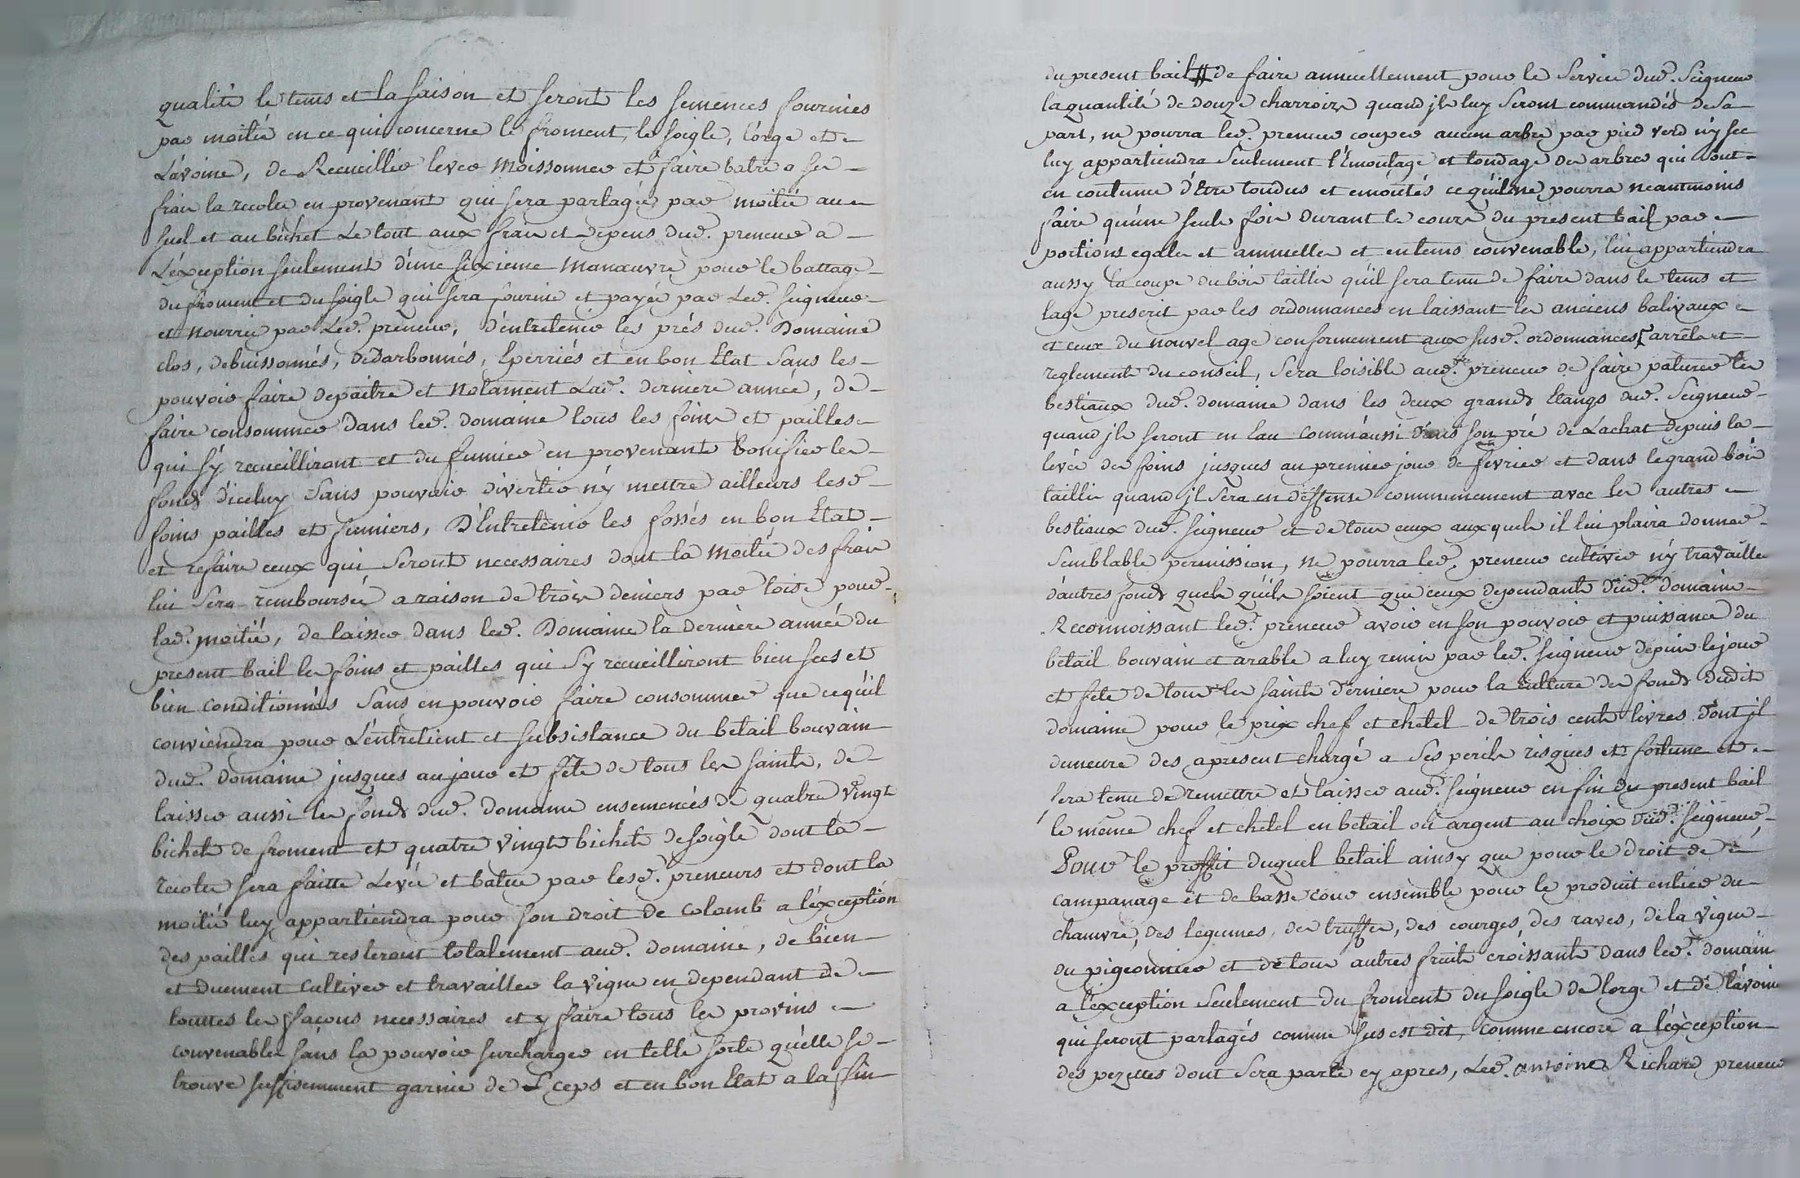 qualité le tems et la saison et seront les semences fournies
par moitié en ce qui concerne le froment, le soigle, l'orge et
L'avoine, de Recueillir lever moissonner et faire batre a ses
frais la recolte en provenant qui sera partagée par moitié au
sueil et au bichet Le tout aux frais et depens dud. preneur a
L'exception seulement d'une sixieme manœuvre pour le battage
du froment et du soigle qui sera fournie et payée par Led. seigneur
et nourrie par Led. preneur, d'entretenir les prés dud. Domaine
clos, debuissonnés, dedarbonnés, Eperriés et en bon Etat sans les
pouvoir faire depaitre et notament Lad. derniere année, de
faire consommer dans led. domaine tous les foins et pailles
qui s'y recueilliront et du fumier en provenant bonifier les
fonds d'iceluy sans pouvoir divertir n'y mettre ailleurs lesd.
foins pailles et fumiers, D'Entretenir les fossés en bon Etat
et refaire ceux qui seront necessaires dont la moitié des frais
lui sera remboursée a raison de trois deniers par toise pour
lad. moitié, de laisser dans led. Domaine la derniere année du
present bail les foins et pailles qui s'y recueilliront bien secs et
bien conditionnés sans en pouvoir faire consommer que ce qu'il
conviendra pour L'entretient et subsistance du betail bouvain
dud. domaine jusques au jour et fete de tous les saints, de
laisser aussi les fonds dud. domaine ensemencés de quatre vingt
bichets de froment et quatre vingt bichets de soigle dont la
recolte sera faitte Levée et batue par lesd. preneurs et dont la
moitié luy appartiendra pour son droit de colomb a l'exception
des pailles qui resteront totalement aud. domaine, de bien
et duement cultiver et travailler la vigne en dependant de
touttes les façons necessaires et y faire tous les provins
convenables sans la pouvoir surcharger en telle sorte qu'elle se
trouve suffisemment garnie de Ceps et en bon Etat a la fin
du present bail # de faire annuellement pour le service dud. Seigneur
la quantité de douze charroirs quand jls luy seront commandés de sa
part, ne pourra led. preneur couper aucun arbre par pied verd n'y sec
luy appartiendra seulement l'Emoutage et tondage des arbres qui sont
en coutume d'être tondus et emoutés ce qu'il ne pourra neantmoins
faire qu'une seule fois durant le cours du present bail par
portions egales et annuelles et en tems convenable, lui appartiendra
aussy la coupe du bois taillis qu'il sera tenu de faire dans le tems et
lage prescrit par les ordonnances en laissant les anciens balivaux
et ceux du nouvel age conformement aux susd. ordonnances arrets et
reglements du conseil, sera loisible aud. preneur de faire paturer les
bestiaux dud. domaine dans les deux grands Etangs dud. Seigneur
quand jls seront en Eau comm'aussi dans son pré de Lachat depuis la
levée des foins jusques au premier jour de fevrier et dans le grand bois
taillis quand jl sera en deffense communement avec les autres
bestiaux dud. seigneur et de tous ceux auxquels il lui plaira donner
semblable permission, ne pourra led. preneur cultiver n'y travailler
d'autres fonds quels qu'ils soient que ceux dependants dud. domaine
Reconnoissant led. preneur avoir en son pouvoir et puissance du
betail bouvain et arable a luy remis par led. seigneur depuis le jour
et fete de tous les saints derniere pour la culture des fonds dudit
domaine pour le prix chef et chetel de trois cents livres dont jl
demeure des apresent chargé a ses perils risques et fortune et
sera tenu de remettre et laisser aud. seigneur en fin du present bail
le même chef et chetel en betail ou argent au choix dud. seigneur,
Pour le proffit duquel betail ainsy que pour le droit de
campanage et de basse cour ensemble pour le produit entier du
chanvre, des legumes, des truffes, des courges, des raves, de la vigne
du pigeonnier et de tous autres fruits croissants dans led. domaine
a l'exception seulement du froment du soigle de lorge et de l'avoine
qui seront partagés comme sus est dit, comme encore a l'éxception
des pezettes dont sera parlé cy apres, Led. antoine Richard preneur